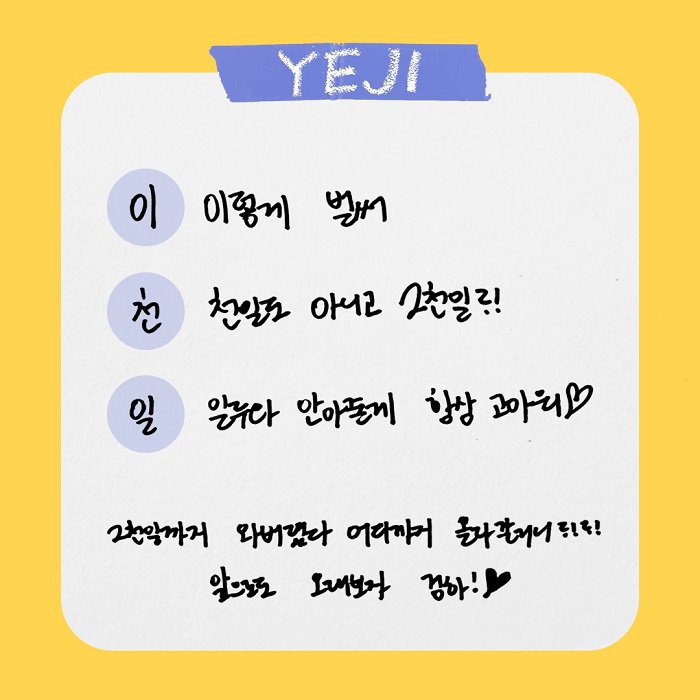 YEJI
이 이렇게 벌써
천 천일도 아니고 2천일!!
일 일루와 안아줄게 항상 고마워♡
2천일까지 와버렸다 어디까지 올라갈거니
앞으로도 오래보자